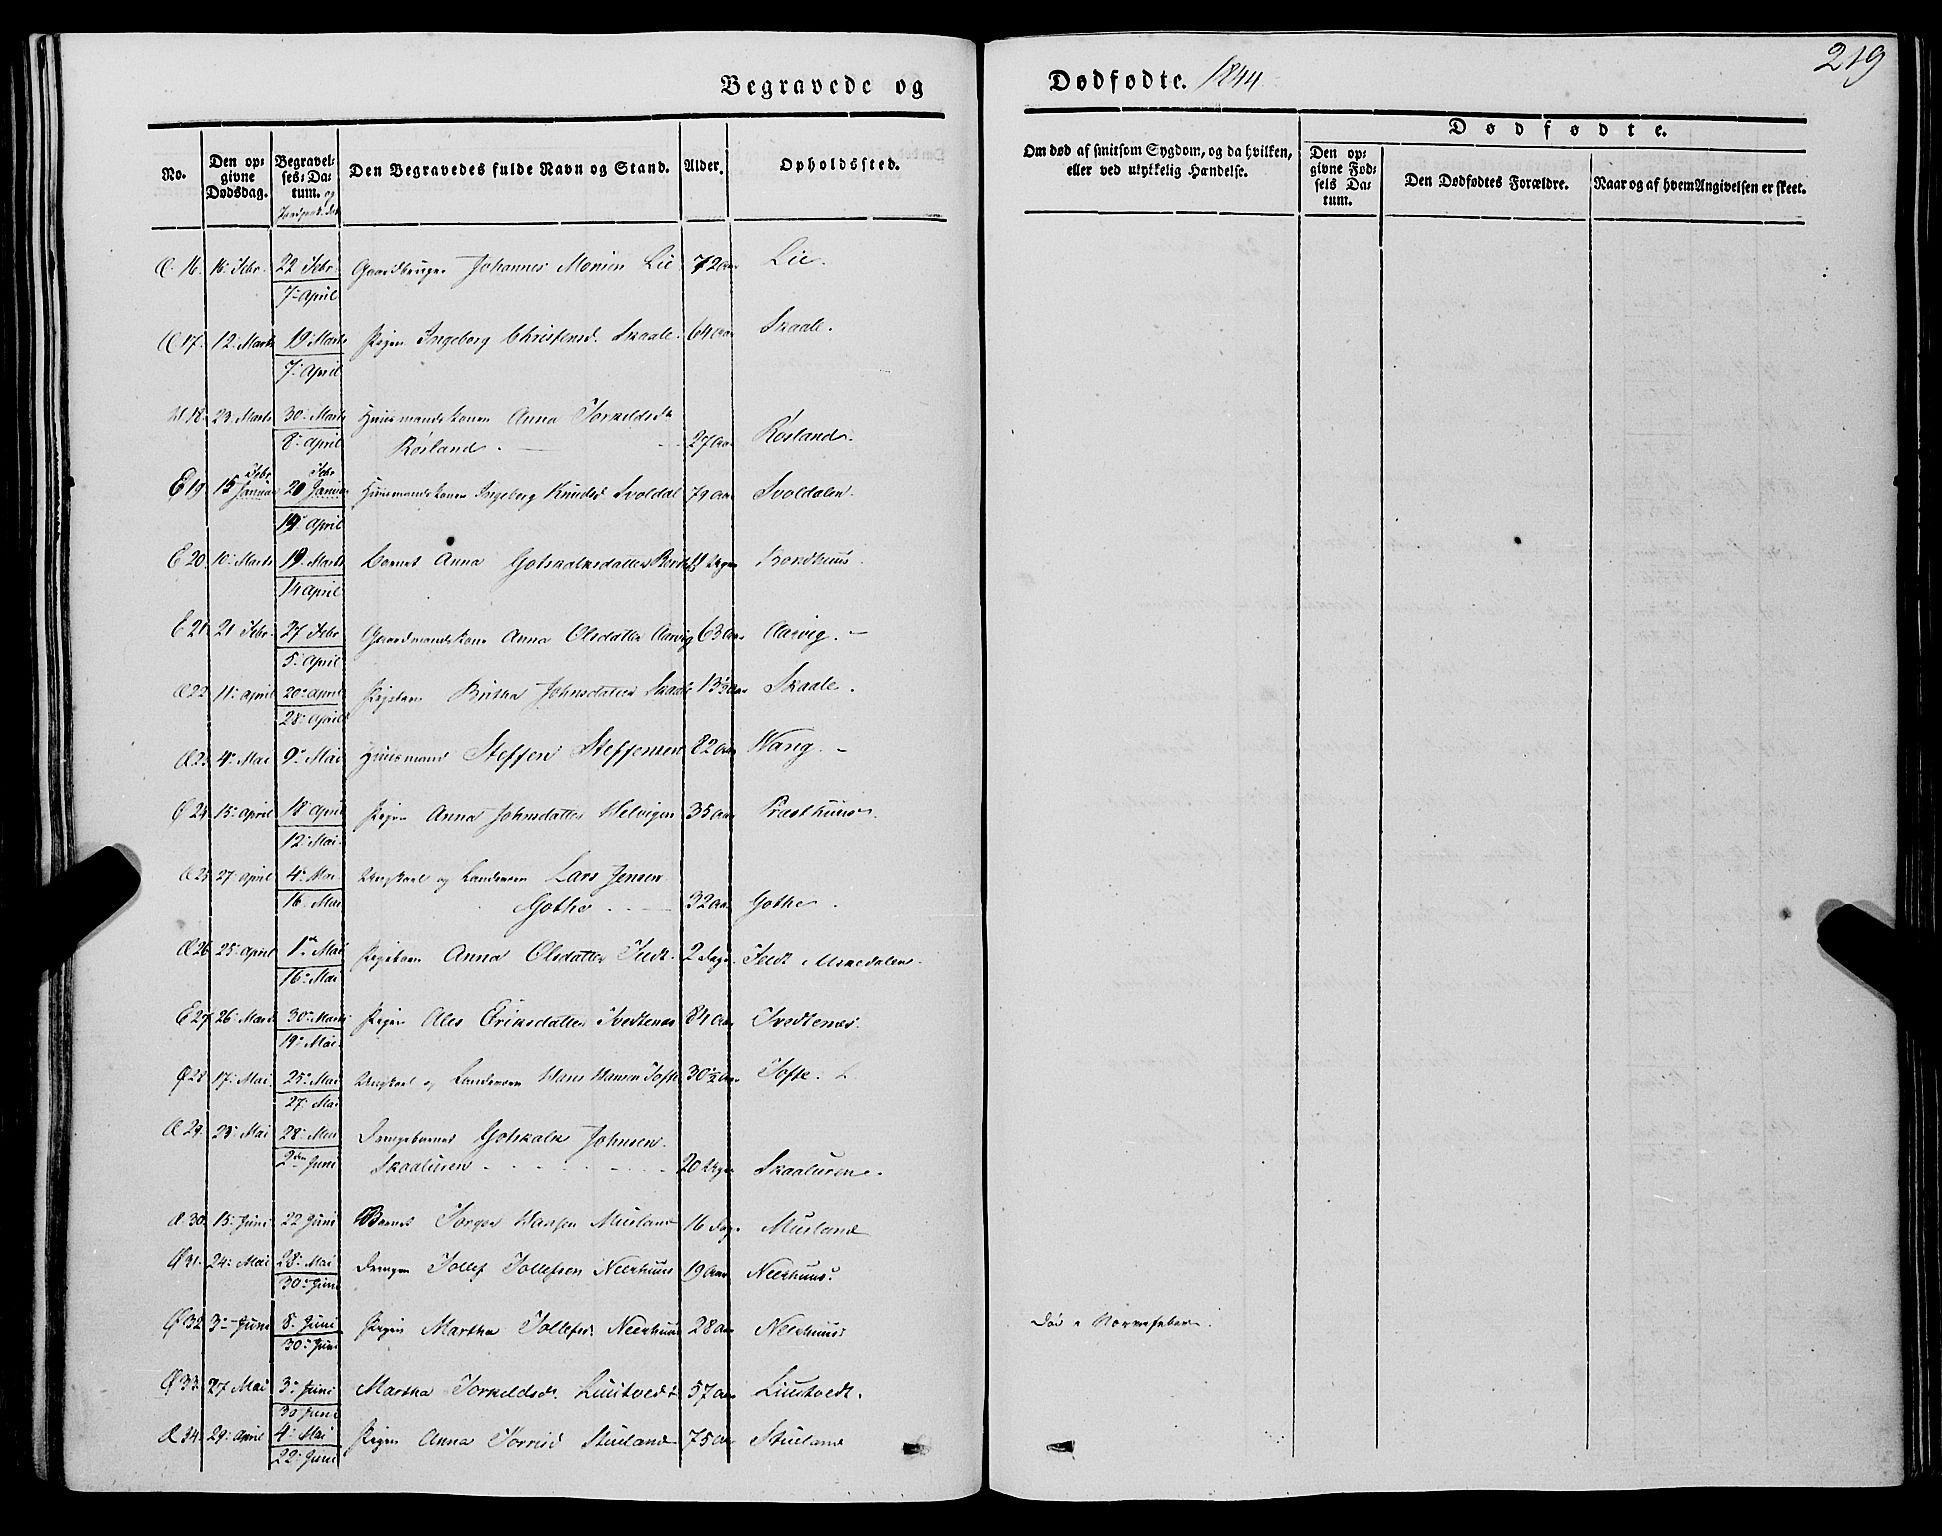 Begravede og
Dødfødte. 1844.
219
No.
Den opgivne Dødsdag.
Begravelses-Datum. og
Den Begravedes fulde Navn og Stand.
Alder.
Opholdssted.
Om død af smitsom Sygdom, og da hvilken,
eller ved ulykkelig Hændelse.
Dødfødte.
Den opgivne Fødsels Datum.
Den Dødfødtes Forældre.
Naar og af hvem Angivelsen er skeet.
16. 16 Febr. 22 Febr. Gaardbruger Johannes Monsen Lie 72 Aar Lie.
7 April
17. 12 Marts 19 Marts Pigen Ingeborg Christensd. Skaale. 64 Aar Skaale.
7 April
18. 23 Marts 30 Marts Huusmandskonen Anna Torkeldsd.
8 April Røsland. 27 Aar Røsland.
Febr Febr
E 19 15 Januar 20 Januar Huusmandskonen Ingeborg Knudsd Svoldal 79 Aar Svoldalen.
14 April
E 20. 10 Marts 19 Marts Barnet Anna Gotskalksdatter Uger Bondhuus.
14 April
E 21. 21 Febr. 27 Febr Gaardmandskone Anna Olsdatter Aarvig 63 Aar Aarvig.
5 April
Æ 22. 11 April 20 April Pigebarn Britha Johnsdatter Skaale Skaale.
28 April
Æ 23. 4 Mai 9 Mai Huusmand Steffen Steffensen 82 Aar Wang.
24. 15 April 18 April Pigen Anna Johnsdatter Helvigen 35 Aar Præsthuus.
12 Mai
Æ 25. 27 April 4 Mai Ungkarl og Landværn Lars Jensen
16 Mai Gothe 32 Aar Gothe.
Æ 26. 25 April 1 Mai Pigebarn Anna Olsdatter 2 Dage
16 Mai
E 27. 26 Marts 30 Marts Pigen Ales Eriksdatter Tvedtenæs 84 Aar Tvedtenæs.
19 Mai
Ø 28. 17 Mai 25 Mai Ungkarl og Landværn Hans Hansen Tofte 30½ Aar Tofte.
27 Mai
Æ 29. 23 Mai 28 Mai Drengebarnet Gotskalk Johnsen
2den Juni Skaaluren 20 Uger Skaaluren.
30. 15 Juni 22 Juni Barnet Torger Hansen Musland 16 Dage Musland
Ø 31. 24 Mai 28 Mai Drengen Tollef Tollefsen Neerhuus 19 Aar Neerhuus.
30 Juni
Ø 32. 3 Juni 8 Juni Pigen Martha Tollefsd. Neerhuus 28 Aar Neerhuus Død af Nervefeber.
30 Juni
Ø 33. 27 Mai 3 Juni Martha Torkeldsd. Liustvedt 57 Aar Liustvedt.
30 Juni
34. 29 April 4 Mai Pigen Anna 75 Aar
22 Juni